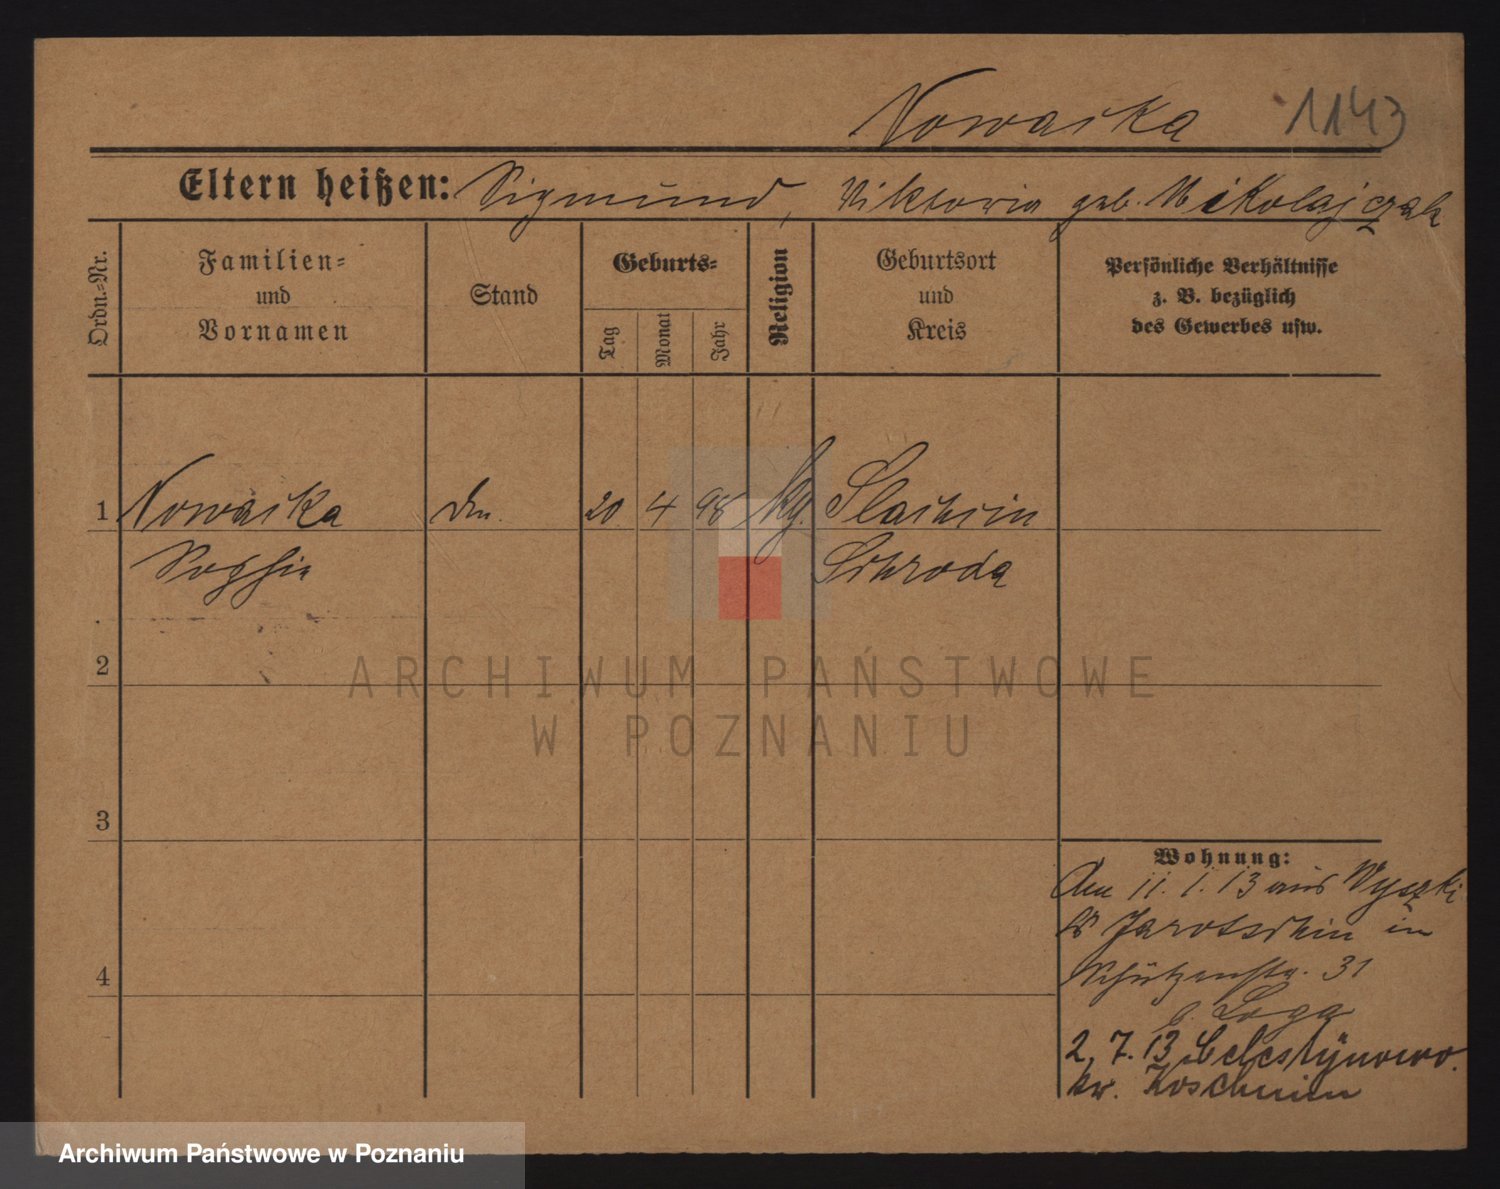 Nowaika 1143
Eltern heißen: Sigmund, Viktoria geb. Mikolajczak
Ordn.-Nr.
Familien-
und
Vornamen
Stand
Geburts-
Tag
Monat
Jahr
Religion
Geburtsort
und
Kreis
Persönliche Verhältnisse
z. B. bezüglich
des Gewerbes usw.
1 Nowaika 20 4 98 Slachcin
Sophia Schroda
2
ARCHIWUM PAŃSTWOWE
W POZNANIU
3
4
Wohnung:
Am 11. 1. 13 aus Wyszki
Jarotschin in
Schützenstr. 31
b. Loga
2. 7. 13 Celestynowo.
kr. Koschmin
Archiwum Państwowe w Poznaniu